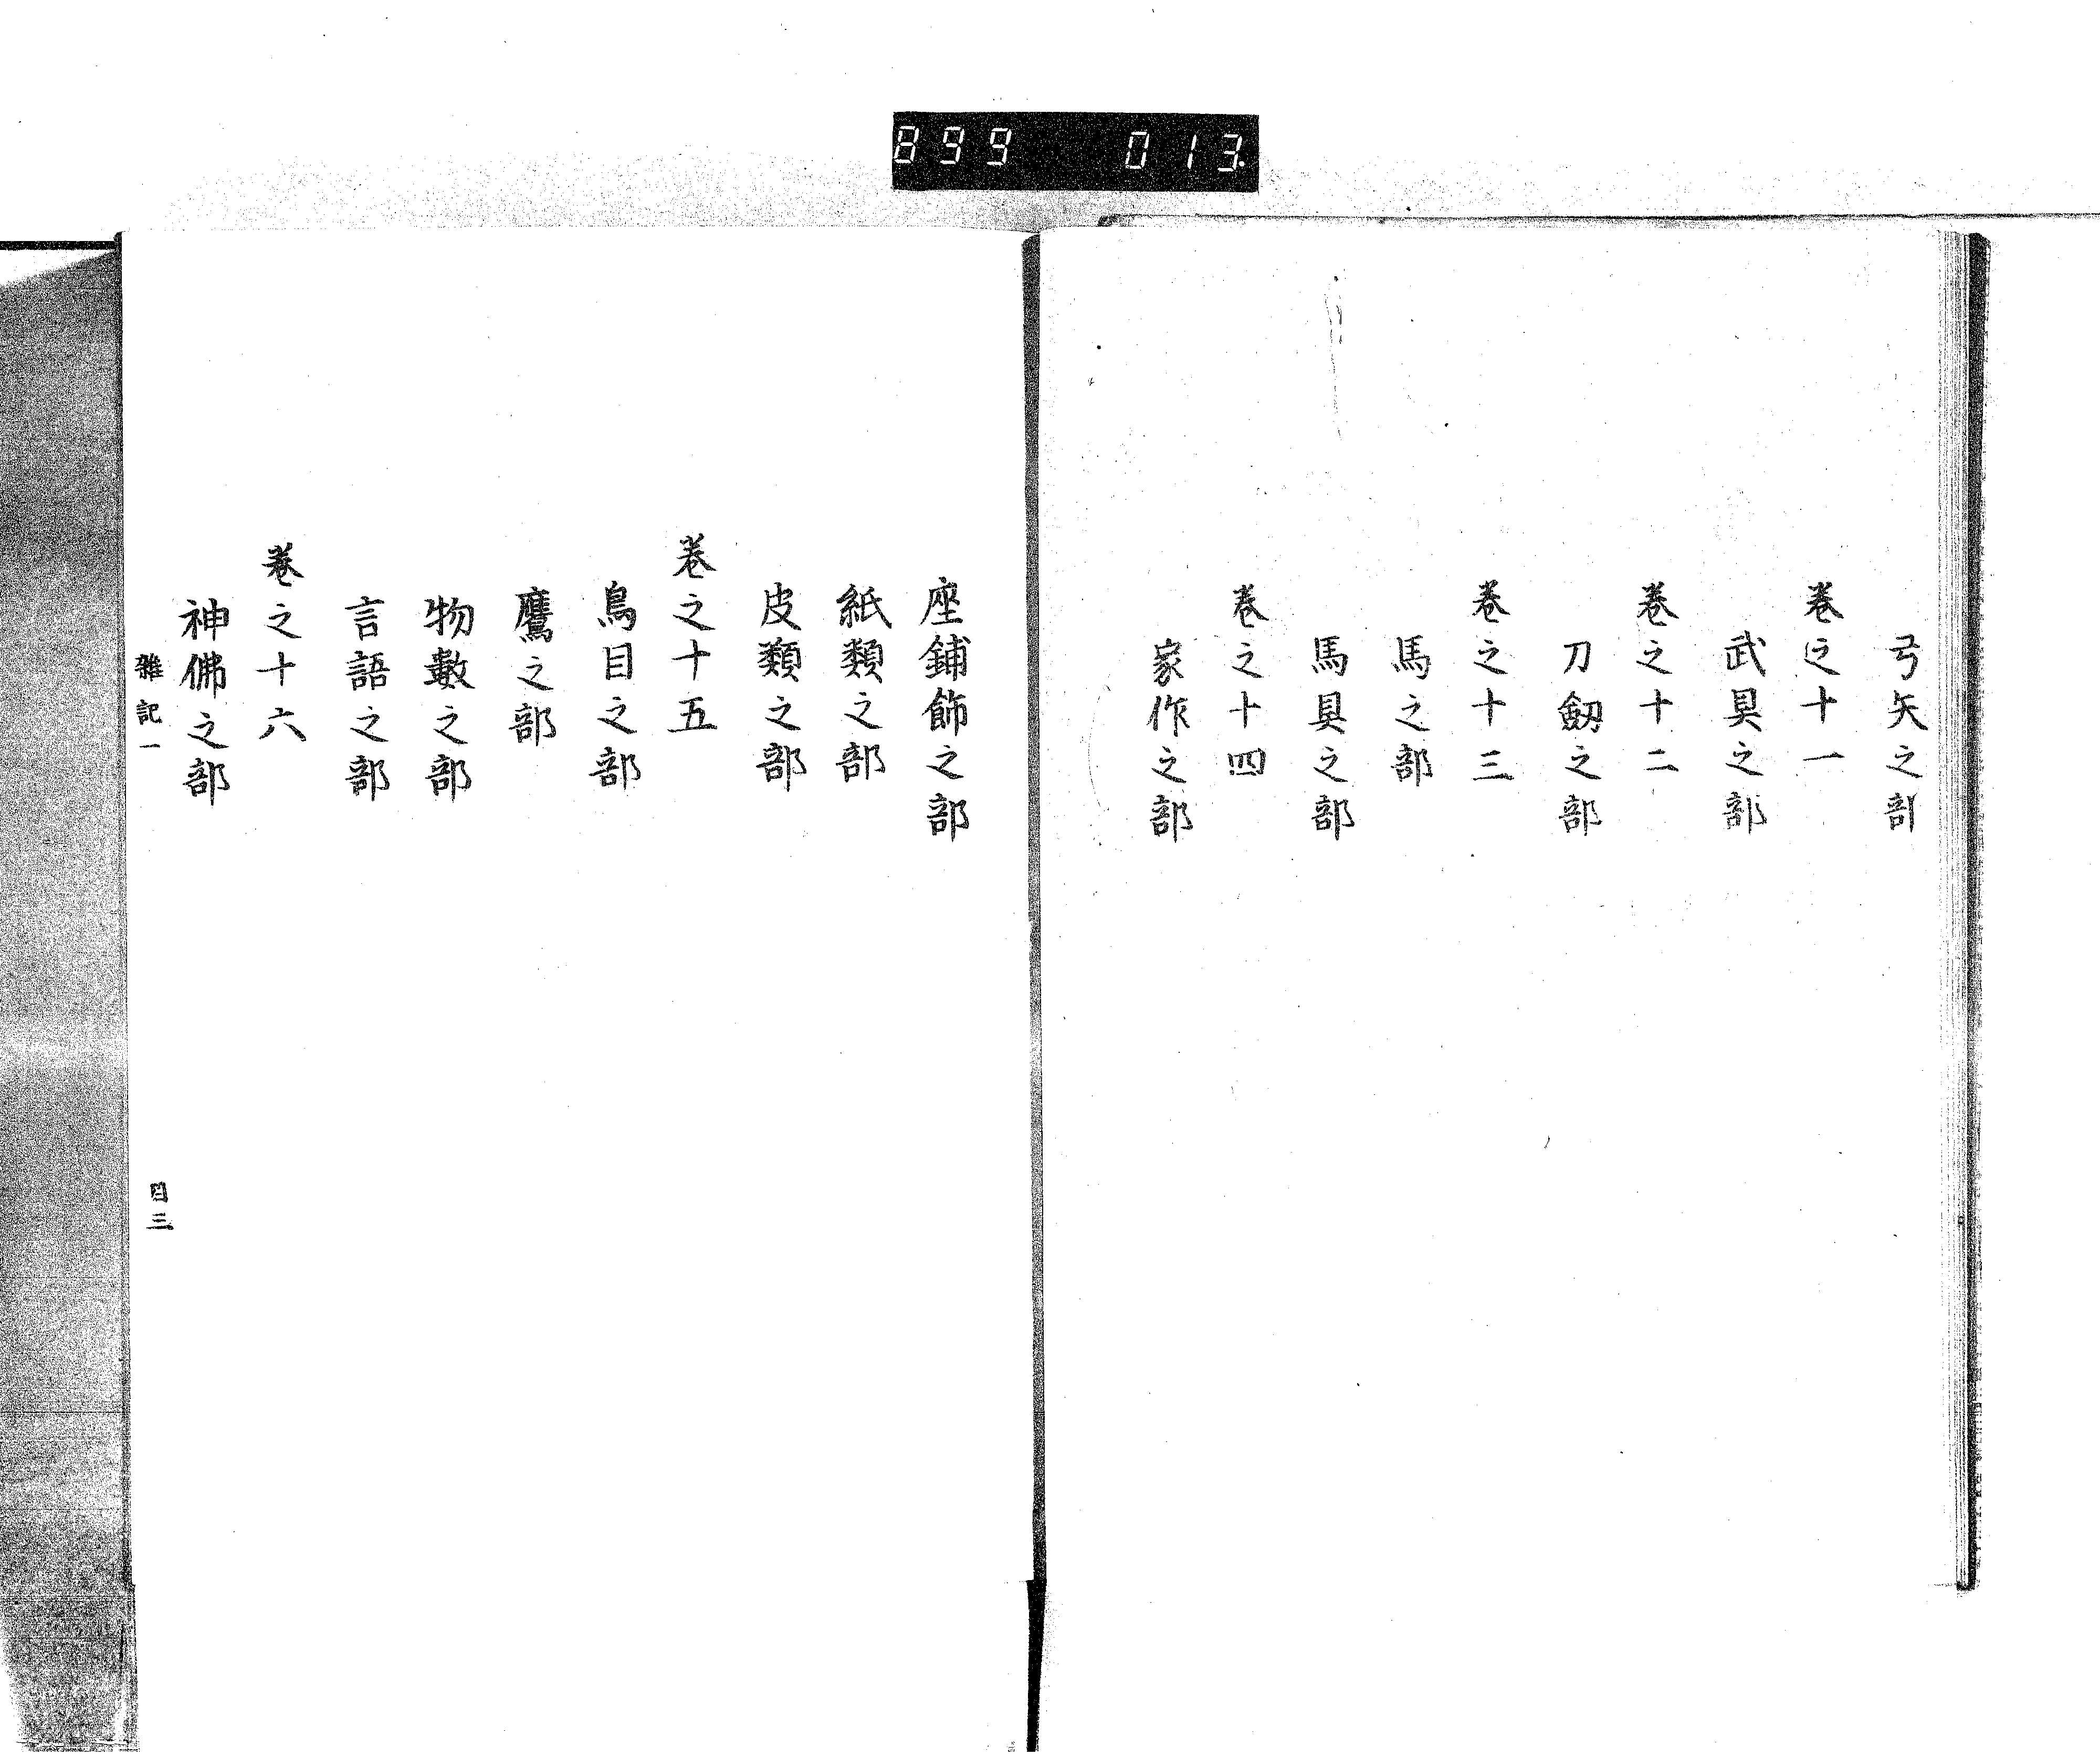 899 013
弓矢之部
卷之十一
武具之部
卷之十二
刀劔之部
卷之十三
馬之部
馬具之部
卷之十四
家作之部
座鋪飾之部
紙類之部
皮類之部
卷之十五
鳥目之部
鷹之部
物數之部
言語之部
卷之十六
神佛之部
雜記一
目三